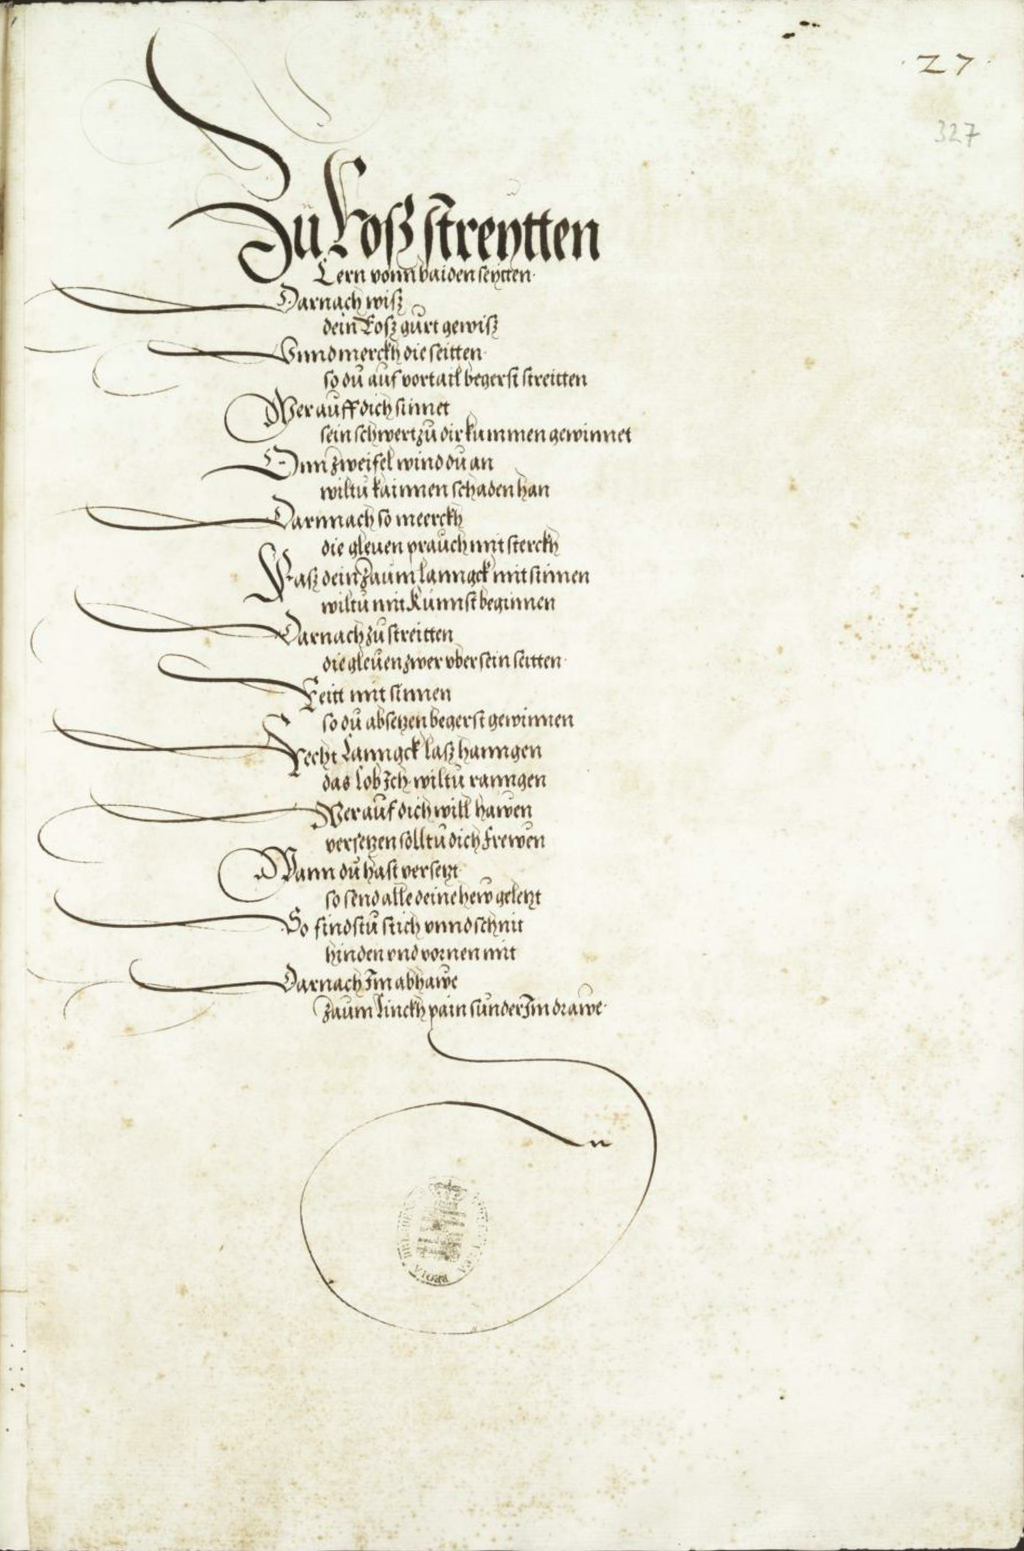 27
327
Zu Roß streytten
Lern vonn baiden seytten
Darnach wiß
dein Roß gürt gewiß
Vnnd merckh die seitten
so dü auf vortail begerst streitten
Wer auff dich sinnet
sein schwert zü dir kummen gewinnet
Onn zweifel wind dü an
wiltü kainnen schaden han
Darnnach so meerckh
die gleuen prauch mit sterckh
Faß dein Zaum lanngck mit sinnen
wiltü mit Künnst beginnen
Darnach zu streitten
die gleüen zwer vber sein seitten
Reitt mit sinnen
so dü absetzen begerst gewinnen
Recht Lanngck laß hanngen
das lob Ich wiltü ranngen
Wer auf dich will hawen
versetzen solltü dich frewen
Wann dü hast versetzt
so send alle deine hew geletzt
So findstü stich vnnd schnit
hinden vnd vornen mit
Darnach Im abhawe
Zaum linckh pain sunder Im drawe